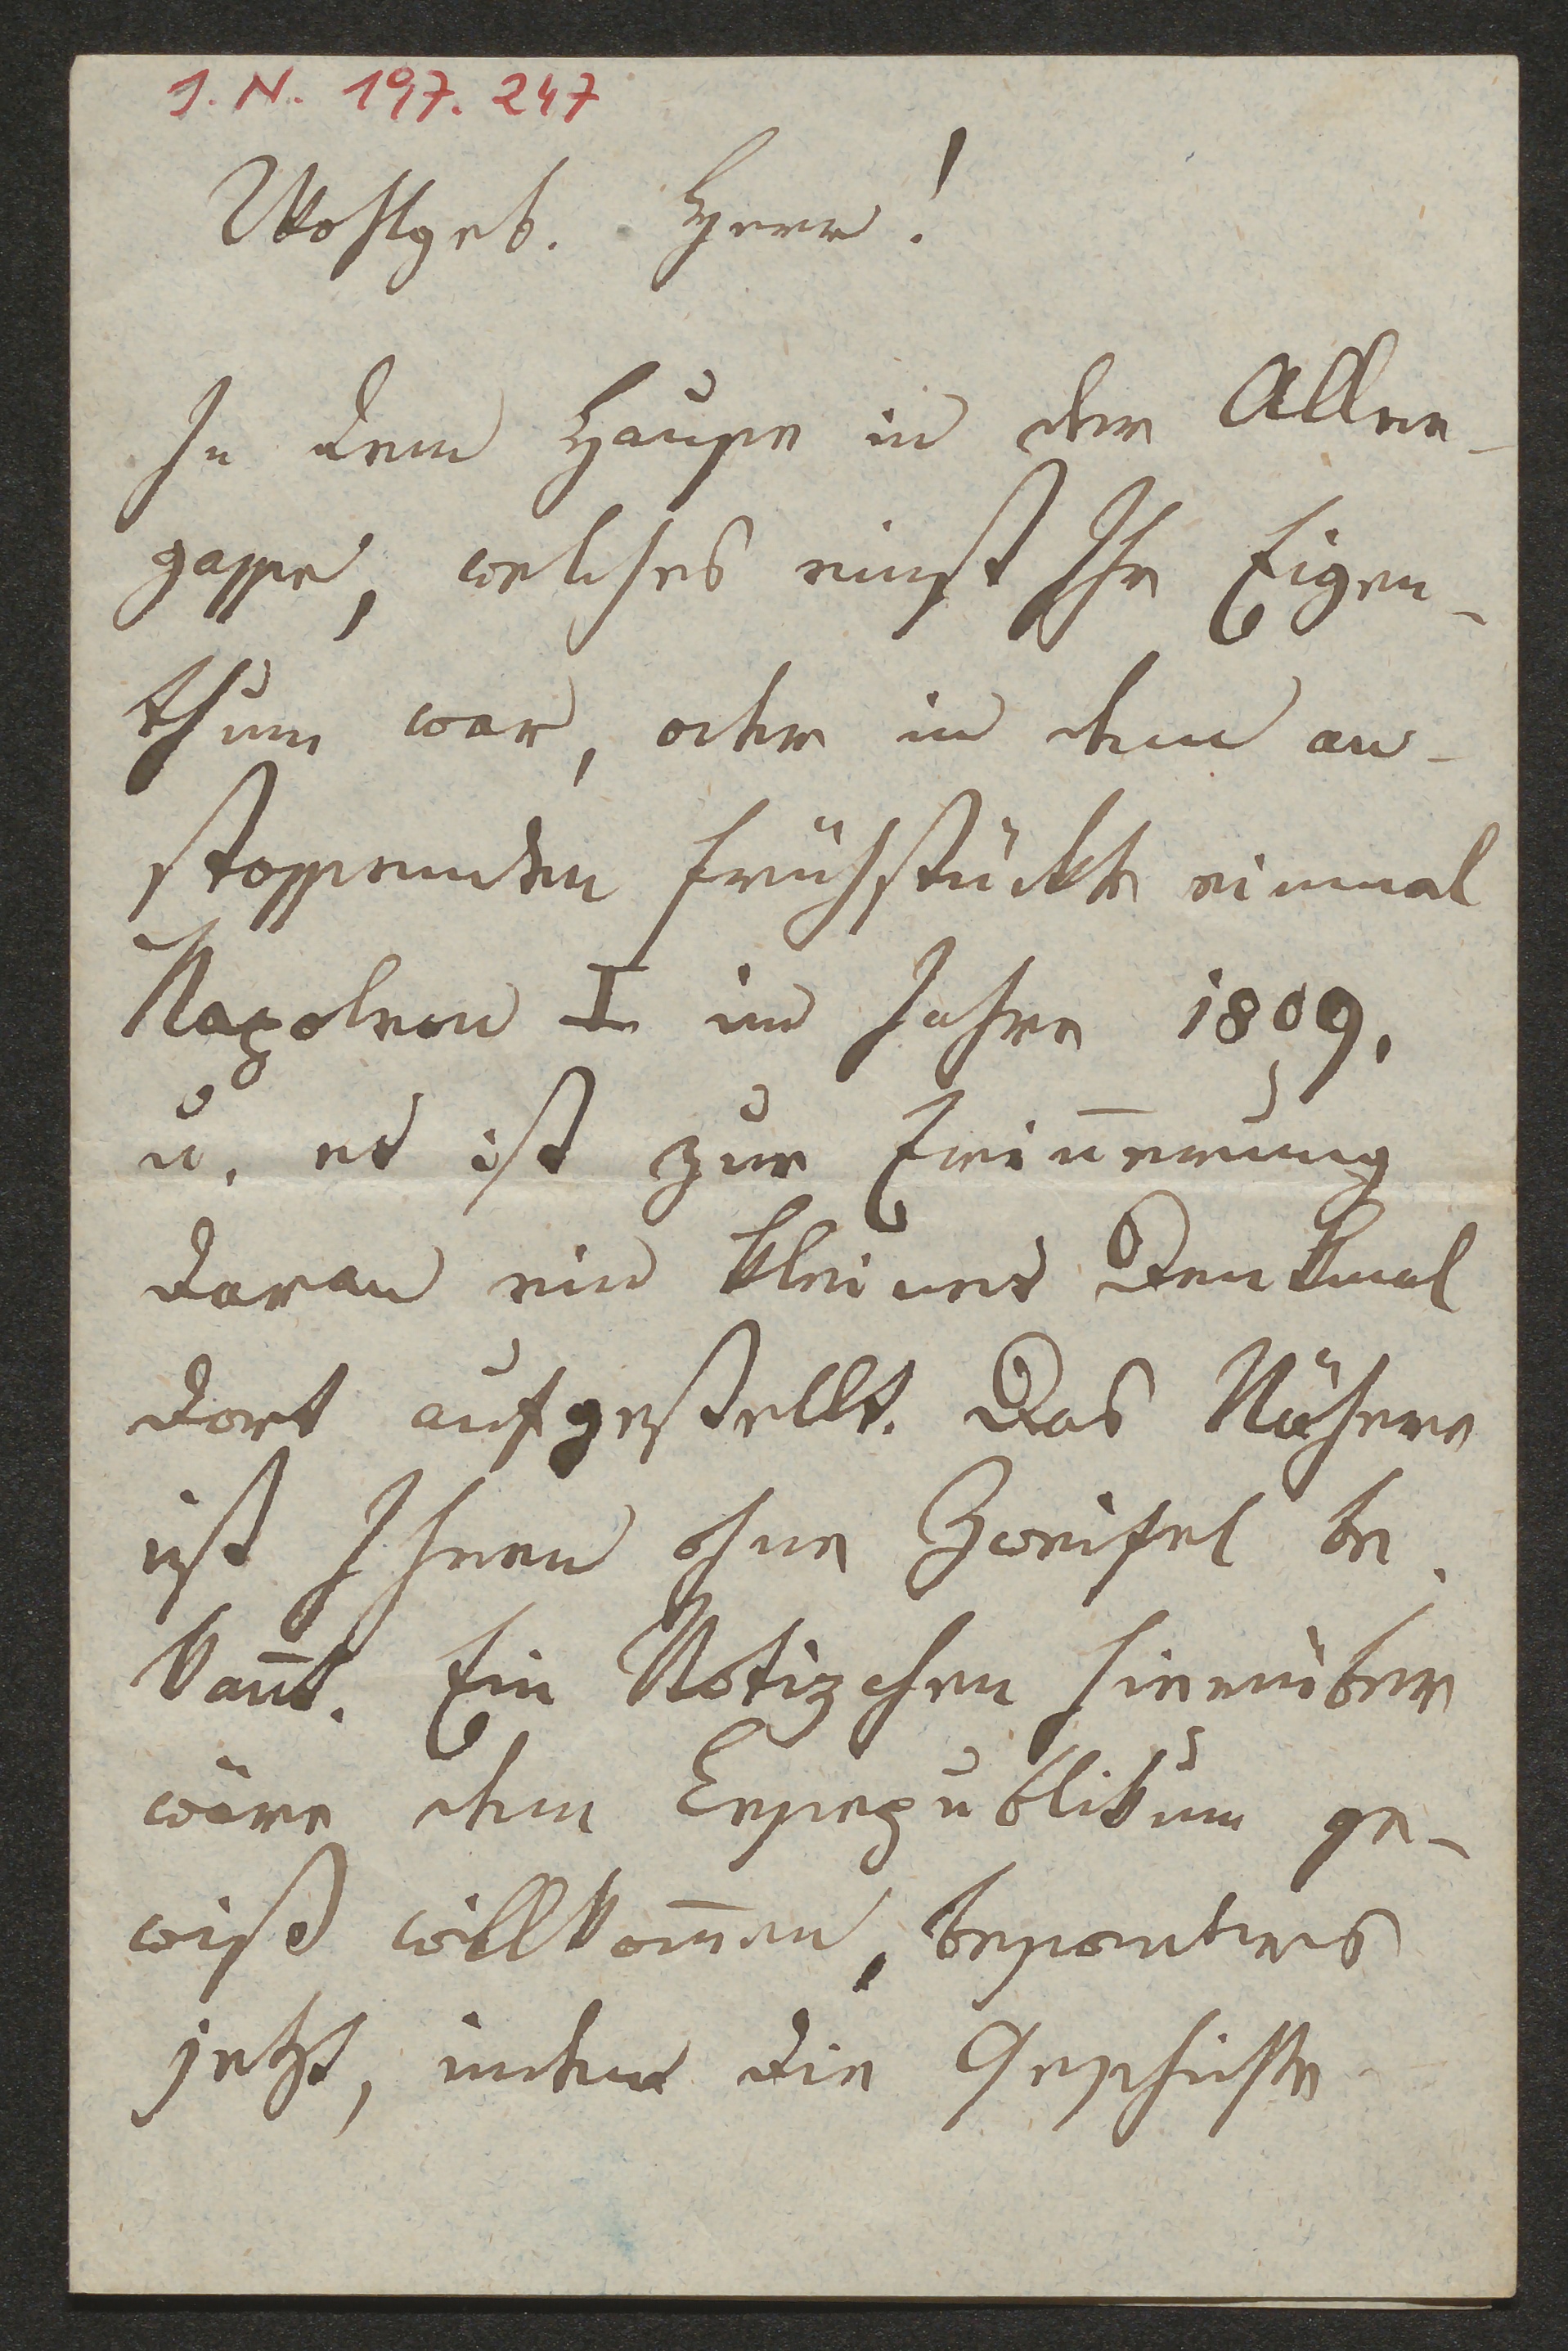 I. N. 197.247
Wohlgeb. Herr!
In dem Hause in der Allee-
gasse, welches einst Ihr Eigen-
thum war, oder in dem an-
stossenden frühstückte einmal
Napoleon I im Jahre 1809,
u. es ist zur Erin̄erung
daran ein kleines Denkmal
dort aufgestellt. Das Nähere
ist Ihnen ohne Zweifel be-
kan̄t. Ein Notizchen hierüber
wäre dem Lesepublikum ge-
wiß willkom̄en, besonders
jetzt, indem die Geschichte